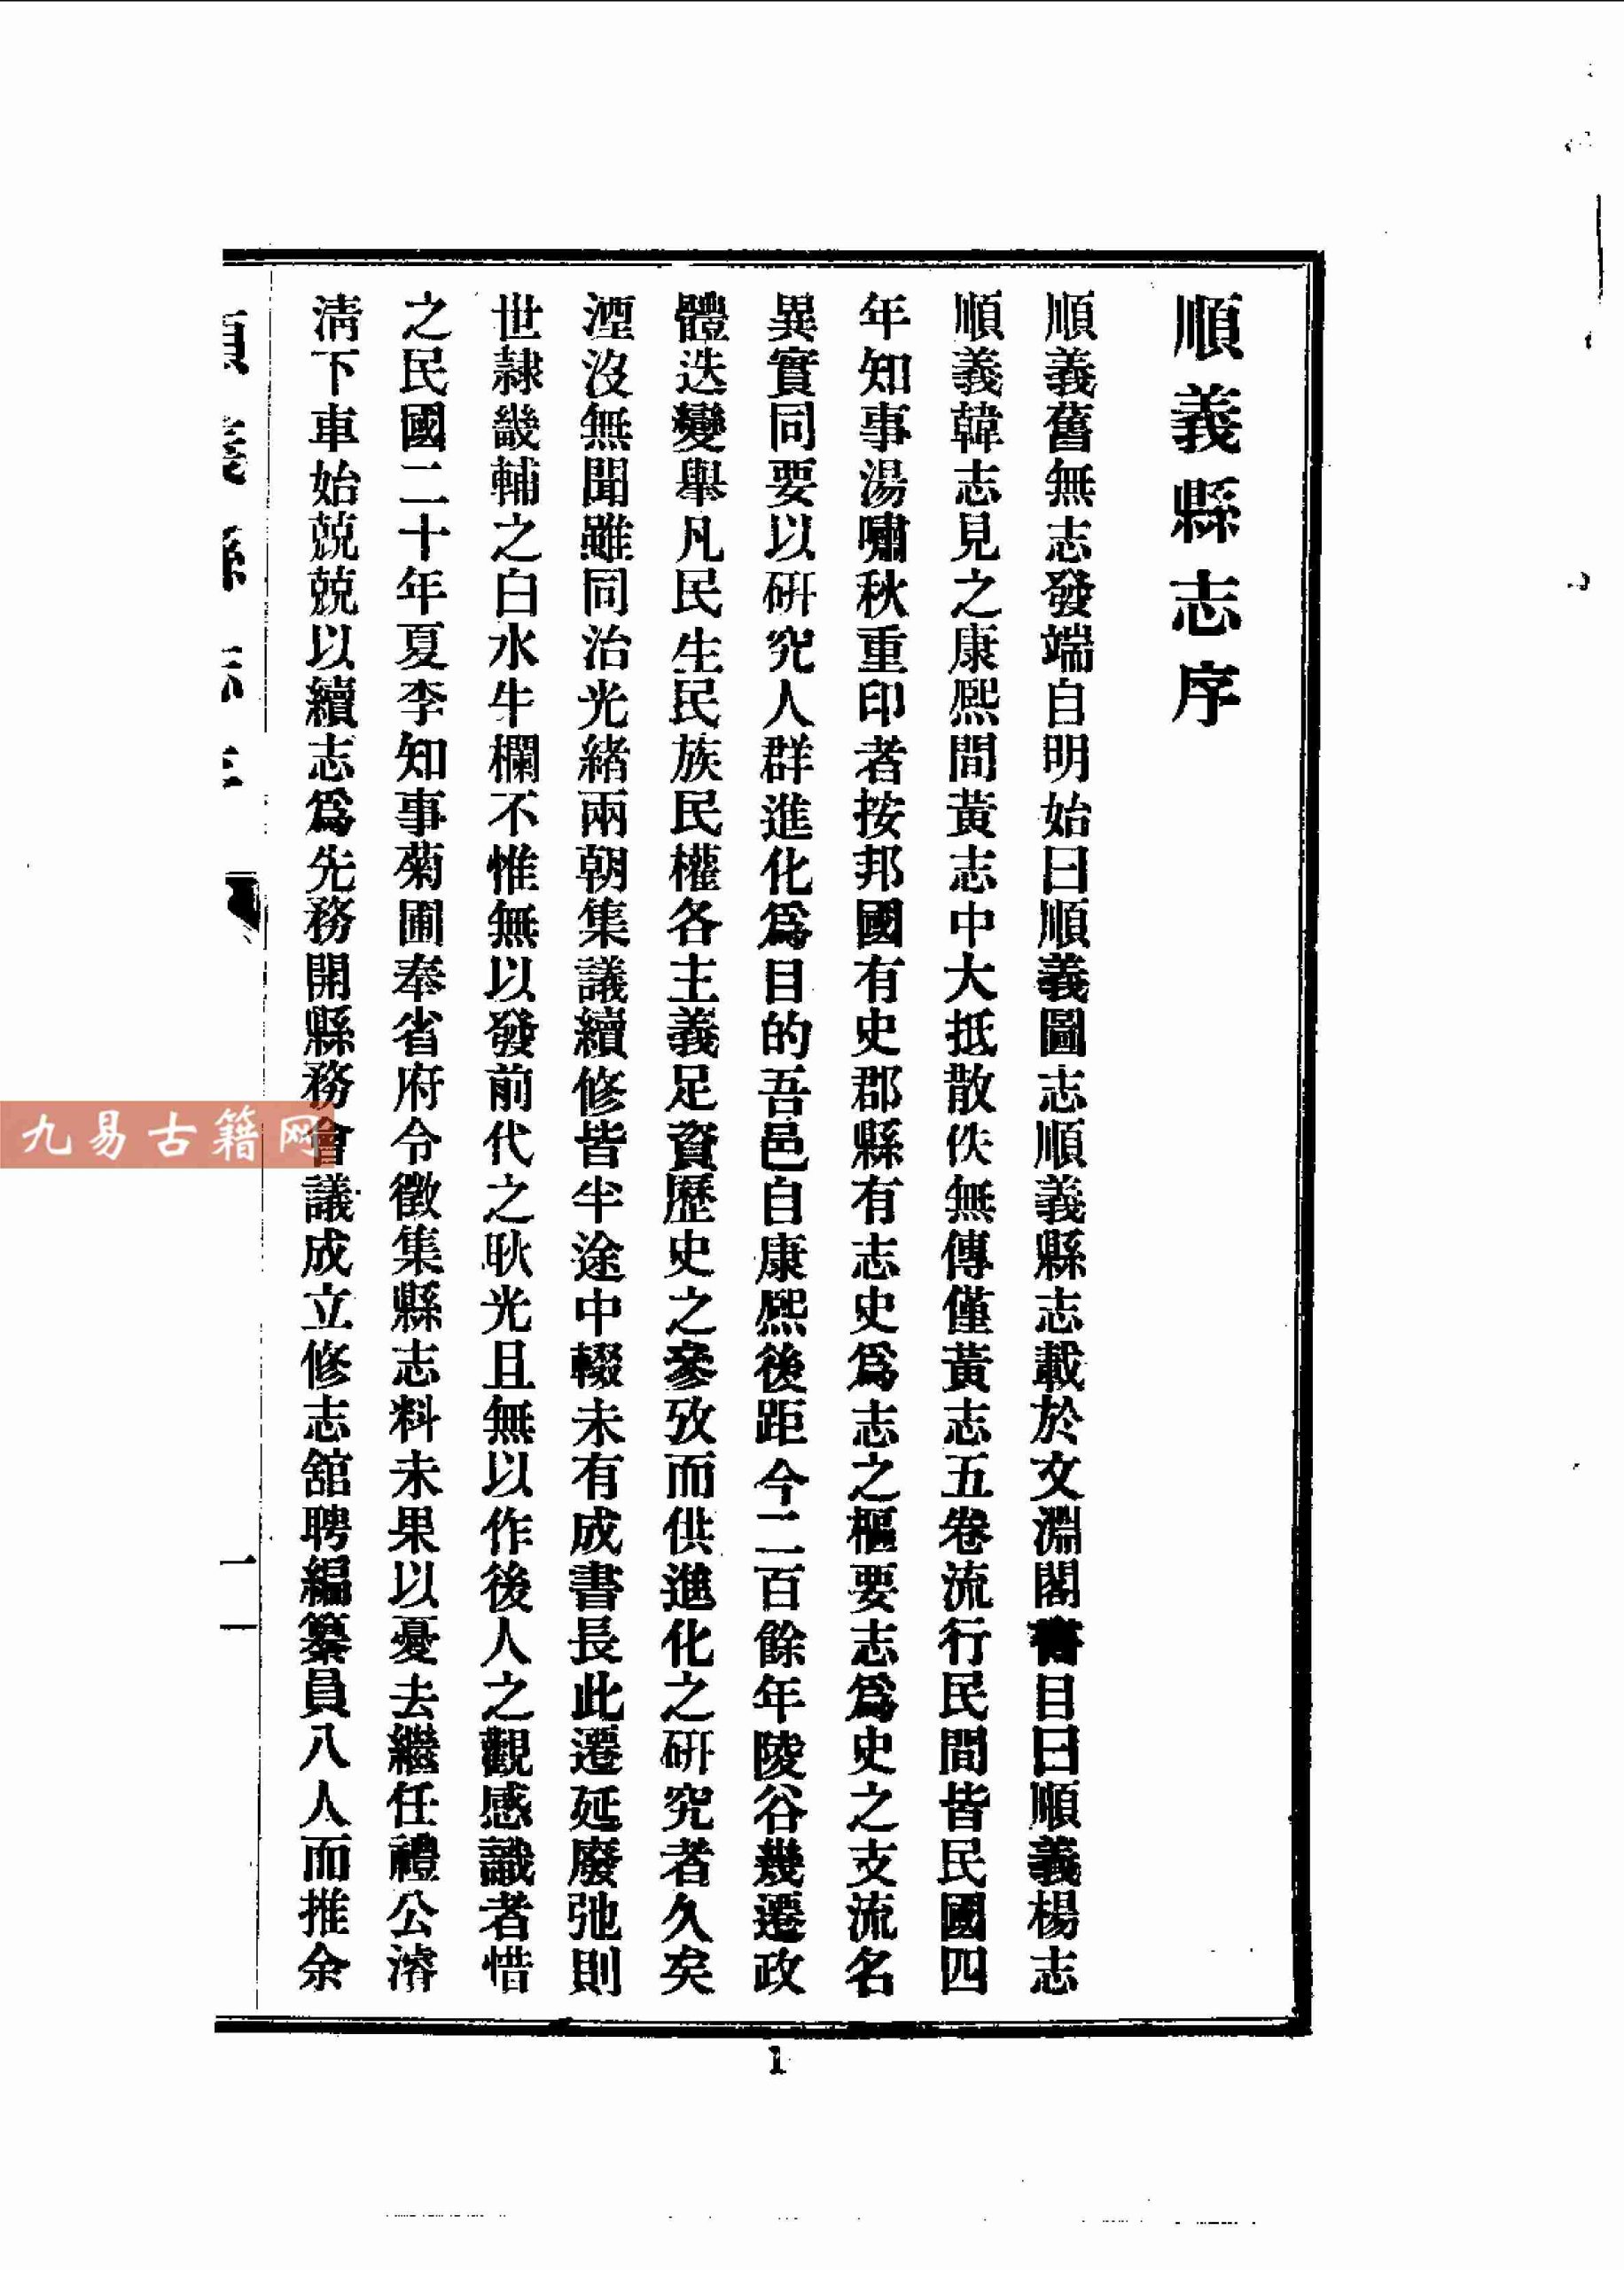 順義縣志序
順義舊無志發端自明始曰順義圖志順義縣志載於文淵閣書目曰順義楊志
順義韓志見之康熙間黃志中大抵散佚無傳僅黃志五卷流行民間皆民國四
年知事湯嘯秋重印者按邦國有史郡縣有志史爲志之樞要志爲史之支流名
異實同要以研究人群進化爲目的吾邑自康熙後距今二百餘年陵谷幾遷政
體迭變舉凡民生民族民權各主義足資歷史之參攷而供進化之研究者久矣
湮沒無聞雖同治光緒兩朝集議續修皆半途中輟未有成書長此遷延廢弛則
世隸畿輔之白水牛欄不惟無以發前代之耿光且無以作後人之觀感識者惜
之民國二十年夏李知事菊圃奉省府令徵集縣志料未果以憂去繼任禮公濬
淸下車始兢兢以續志爲先務開縣務會議成立修志舘聘編纂員八人而推余
順義縣志序
一
一
1
九易古籍网